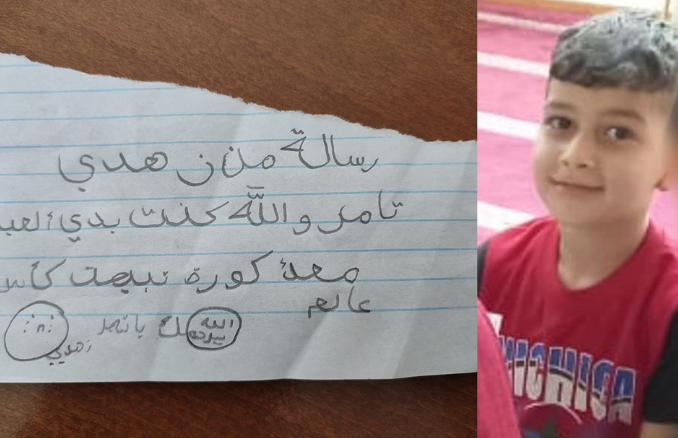 رسالة من زهدي
تامر والله كنت بدي العب
معك كورة نبيهت كأس
عالم
الله يرحمك يا تامر
زهدي
MICHIGA